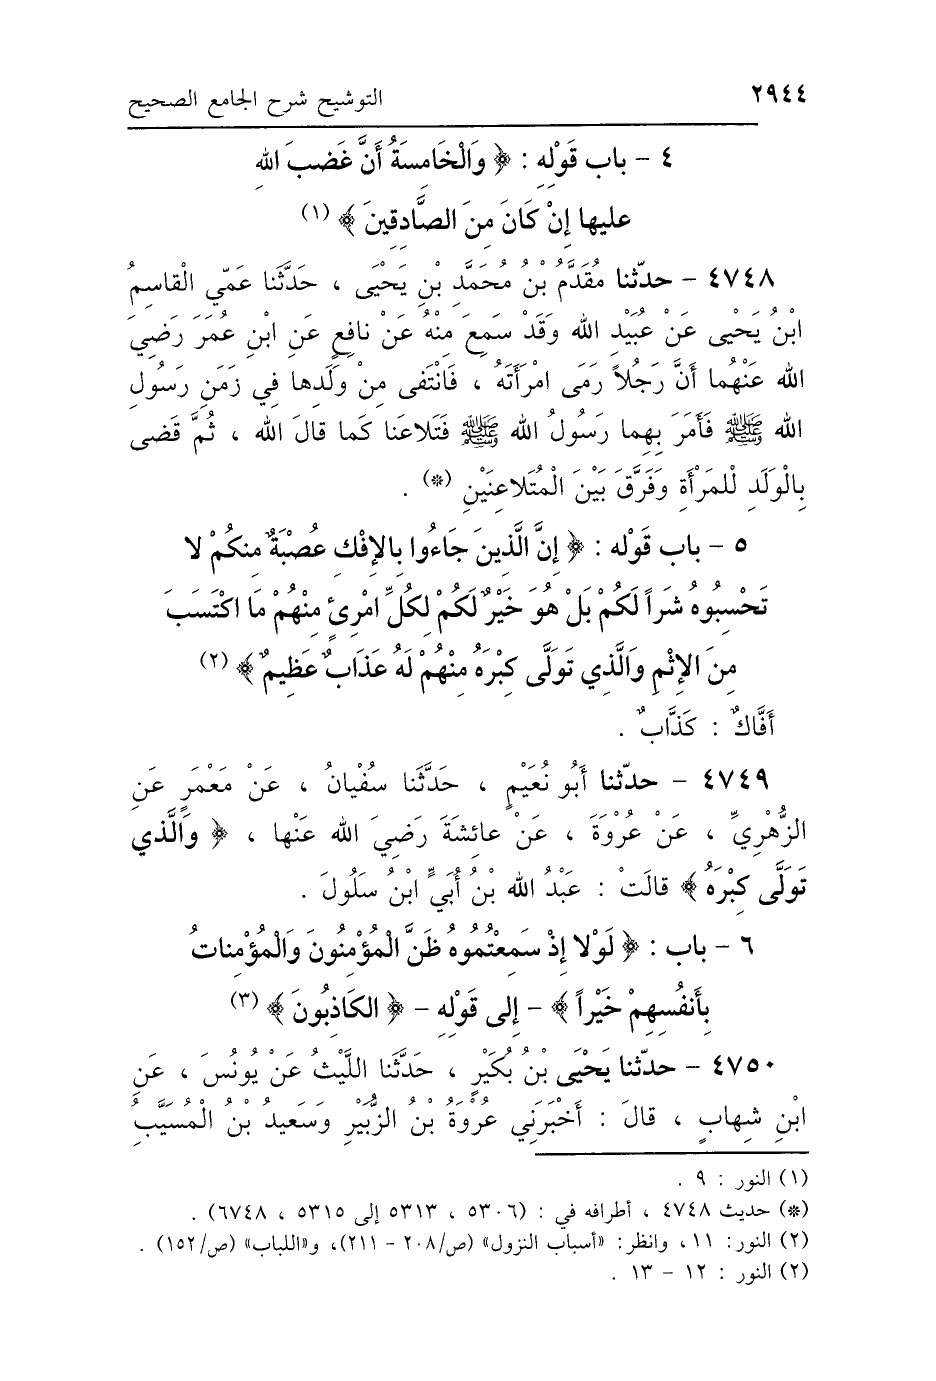 ٢٩٤٤ التوشيح شرح الجامع الصحيح
٤ - باب قَوْلِهِ : ﴿ وَالْخَامِسَةُ أَنَّ غَضِبَ اللهِ
عليها إِنْ كَانَ مِنَ الصَّادِقِينَ ﴾ (١)
٤٧٤٨ - حدّثنا مُقَدَّمُ بْنُ مُحَمَّدِ بْنِ يَحْيَى ، حَدَّثَنَا عَمِّي الْقَاسِمُ
ابْنُ يَحْيى عَنْ عُبَيْدِ اللهِ وَقَدْ سَمِعَ مِنْهُ عَنْ نافِعٍ عَنِ ابْنِ عُمَرَ رَضِيَ
اللهُ عَنْهُما أَنَّ رَجُلاً رَمَى امْرَأَتَهُ ، فَانْتَفى مِنْ وَلَدِها فِي زَمَنِ رَسُولِ
اللهِ ﷺ فَأَمَرَ بِهِما رَسُولُ اللهِ ﷺ فَتَلاعَنا كَما قالَ اللهُ ، ثُمَّ قَضى
بِالْوَلَدِ لْلمَرْأَةِ وَفَرَّقَ بَيْنَ الْمُتَلاعِنَيْنِ (*) .
٥ - باب قَوْلِهِ : ﴿ إِنَّ الَّذِينَ جَاءُوا بِالإِفْكِ عُصْبَةٌ مِنكُمْ لا
تَحْسِبُوهُ شَرَاً لَكُمْ بَلْ هُوَ خَيْرٌ لَكُمْ لِكُلِّ امْرِئٍ مِنْهُمْ مَا اكْتَسَبَ
مِنَ الإِثْمِ وَالَّذِي تَوَلَّى كِبْرَهُ مِنْهُمْ لَهُ عَذَابٌ عَظِيمٌ ﴾ (٢)
أَفَّاكٌ : كَذَّابٌ .
٤٧٤٩ - حدّثنا أَبُو نُعَيْمٍ ، حَدَّثَنَا سُفْيانُ ، عَنْ مَعْمَرٍ عَنِ
الزُّهْرِيِّ ، عَنْ عُرْوَةَ ، عَنْ عائِشَةَ رَضِيَ اللهُ عَنْها ، ﴿ وَالَّذي
تَوَلَّى كِبْرَهُ ﴾ قالَتْ : عَبْدُ اللهِ بْنُ أُبَيٍّ ابْنُ سَلُولَ .
٦ - باب : ﴿ لَوْلا إِذْ سَمِعْتُمُوهُ ظَنَّ الْمُؤْمِنُونَ وَالْمُؤْمِناتُ
بِأَنفُسِهِمْ خَيْراً ﴾ - إِلى قَوْلِهِ - ﴿ الكَاذِبُونَ ﴾ (٣)
٤٧٥٠ - حدّثنا يَحْيَى بْنُ بُكَيْرٍ ، حَدَّثَنَا اللَّيْثُ عَنْ يُونُسَ ، عَنِ
ابْنِ شِهابٍ ، قالَ : أَخْبَرَنِي عُرْوَةُ بْنُ الزُّبَيْرِ وَسَعِيدُ بْنُ الْمُسَيَّبُ
(١) النور : ٩ .
(*) حديث ٤٧٤٨ ، أطرافه في : (٥٣٠٦ ، ٥٣١٣ إلى ٥٣١٥ ، ٦٧٤٨) .
(٢) النور: ١١، وانظر: «أسباب النزول» (ص/٢٠٨ - ٢١١)، و«اللباب» (ص/١٥٢) .
(٢) النور : ١٢ - ١٣ .